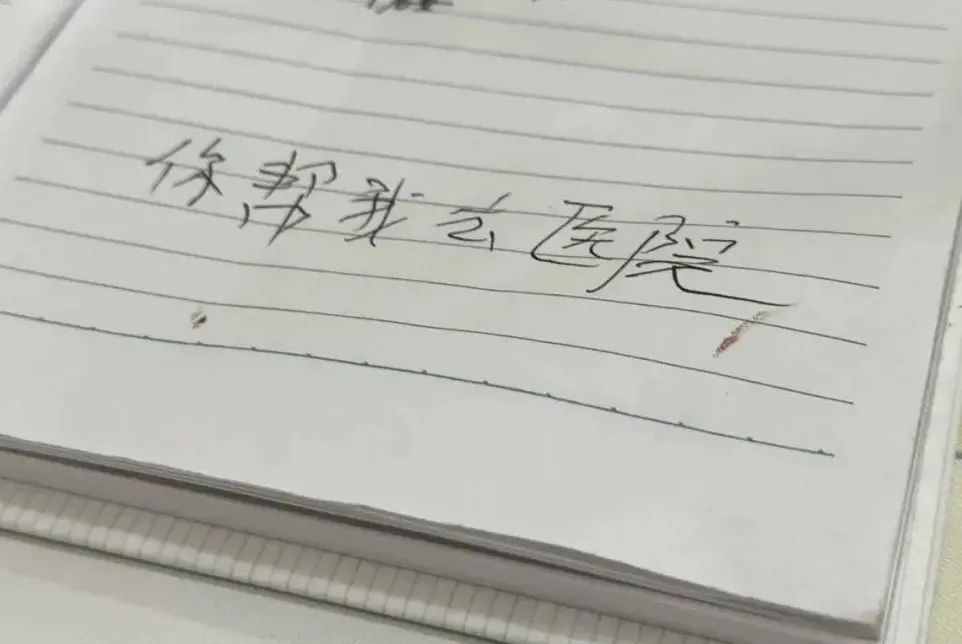 你帮我去医院